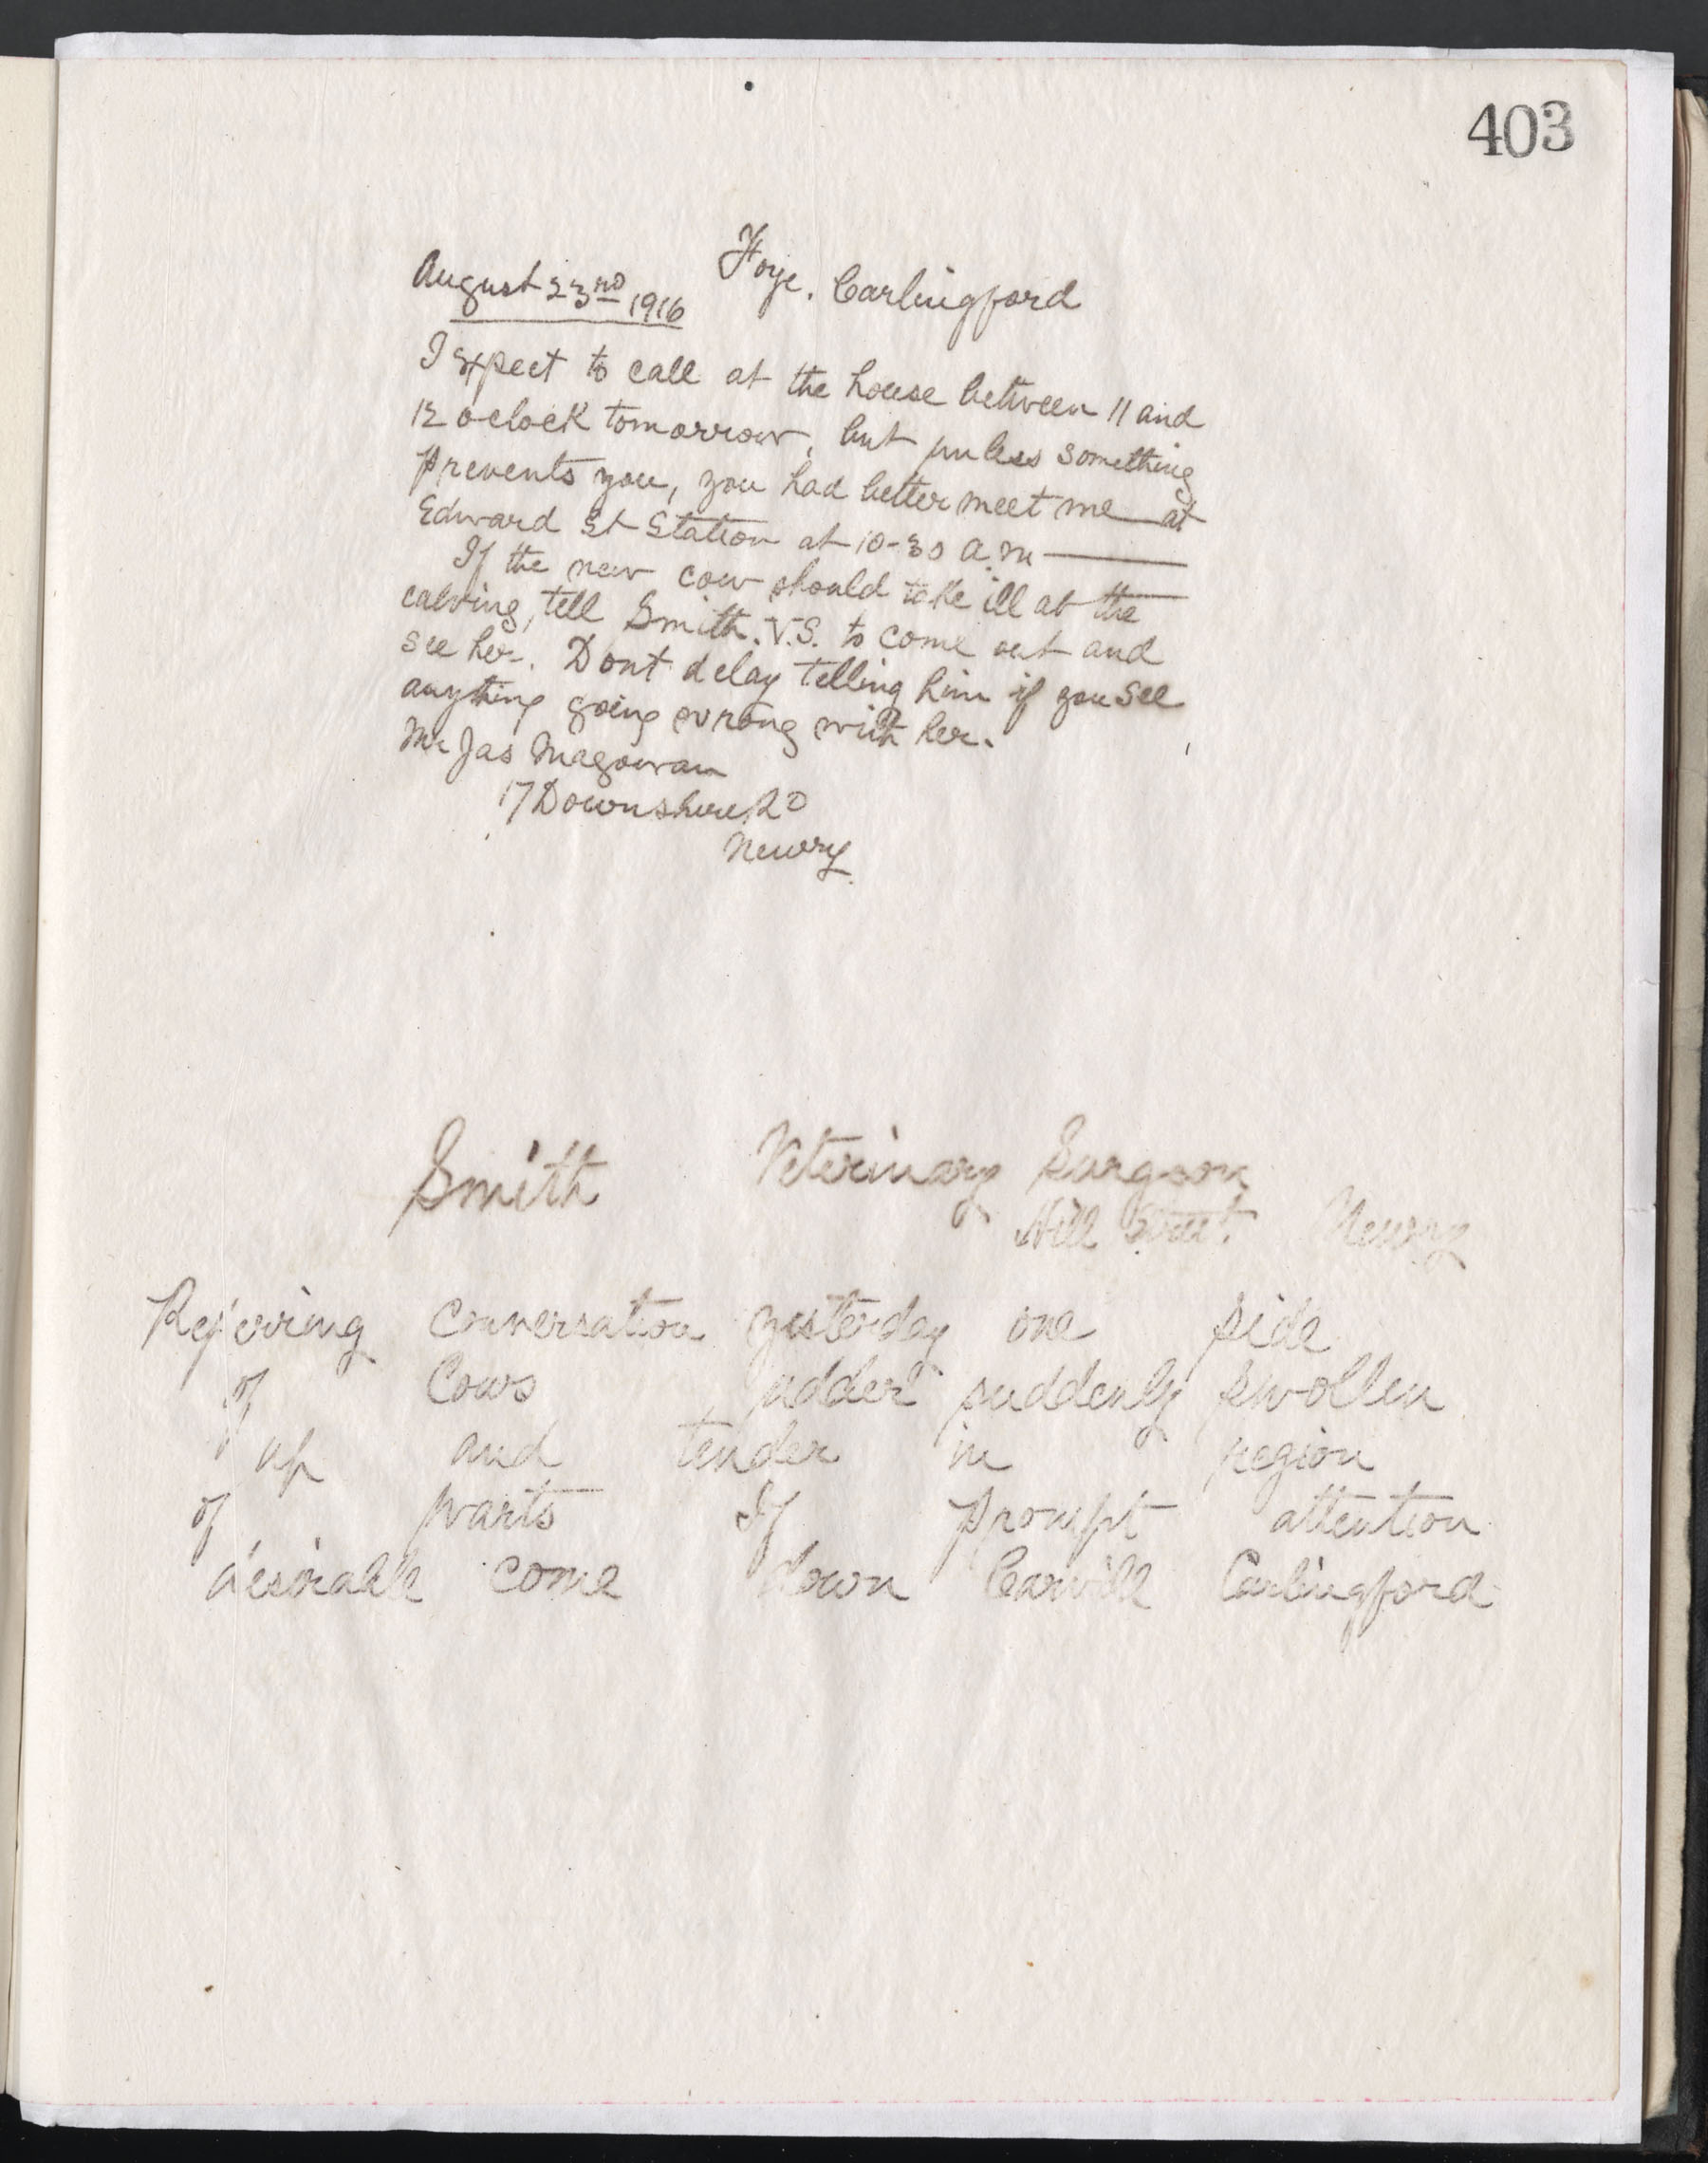 403
Foye, Carlingford
August 23rd 1916
I expect to call at the house between 11 and
12 oclock tomorrow, but unless something
prevents you, you had better meet me at
Edward St Station at 10-30 a.m
If the new cow should take ill at the
calving, tell Smith. V.S. to come out and
see her. Dont delay telling him if you see
anything going wrong with her.
Mr Jas Magowan
17 Downshire Rd
Newry
Smith Veterinary Surgeon
Hill Street. Newry
Refering conversation yesterday one side
of Cows udder suddenly swollen
up and tender in region
of parts If prompt attention
desirable come down Carvill Carlingford